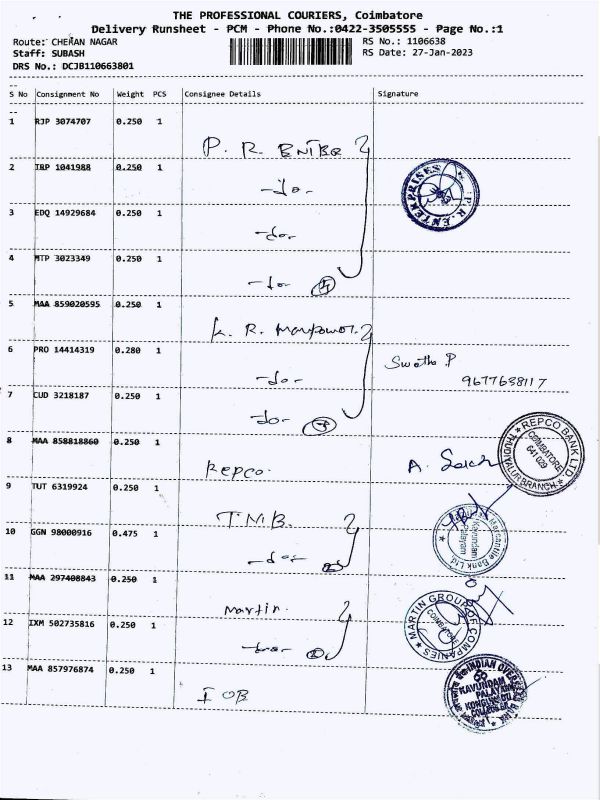 THE PROFESSIONAL COURIERS, Coimbatore
Delivery Runsheet - PCM - Phone No.:0422-3505555 - Page No.:1
Route: CHERAN NAGAR RS No.: 1106638
Staff: SUBASH RS Date: 27-Jan-2023
DRS No.: DCJB110663801
S No Consignment No Weight PCS Consignee Details Signature
1 RJP 3074707 0.250 1
P. R. ENTER
2 TRP 1041988 0.250 1
-do-
P.R. ENTERPRISES
3 EDQ 14929684 0.250 1
-do-
4 MTP 3023349 0.250 1
-do- 4
5 MAA 859020595 0.250 1
R. Manpower.
6 PRO 14414319 0.280 1
-do- Swetha P
9677638117
7 CUD 3218187 0.250 1
-do- 3
8 MAA 858818860 0.250 1
Repco. A.
REPCO BANK LTD
THUDIYALUR BRANCH
COIMBATORE
641 029
9 TUT 6319924 0.250 1
T.M.B.
Mercantile Bank Ltd.
10 GGN 98000916 0.475 1
-do- 2
11 MAA 297408843 0.250 1
Martin.
MARTIN GROUP OF COMPANIES
COIMBATORE
12 IXM 502735816 0.250 1
13 MAA 857976874 0.250 1
I OB
INDIAN OVERSEAS BANK
KAVUNDAM
PALAYAM